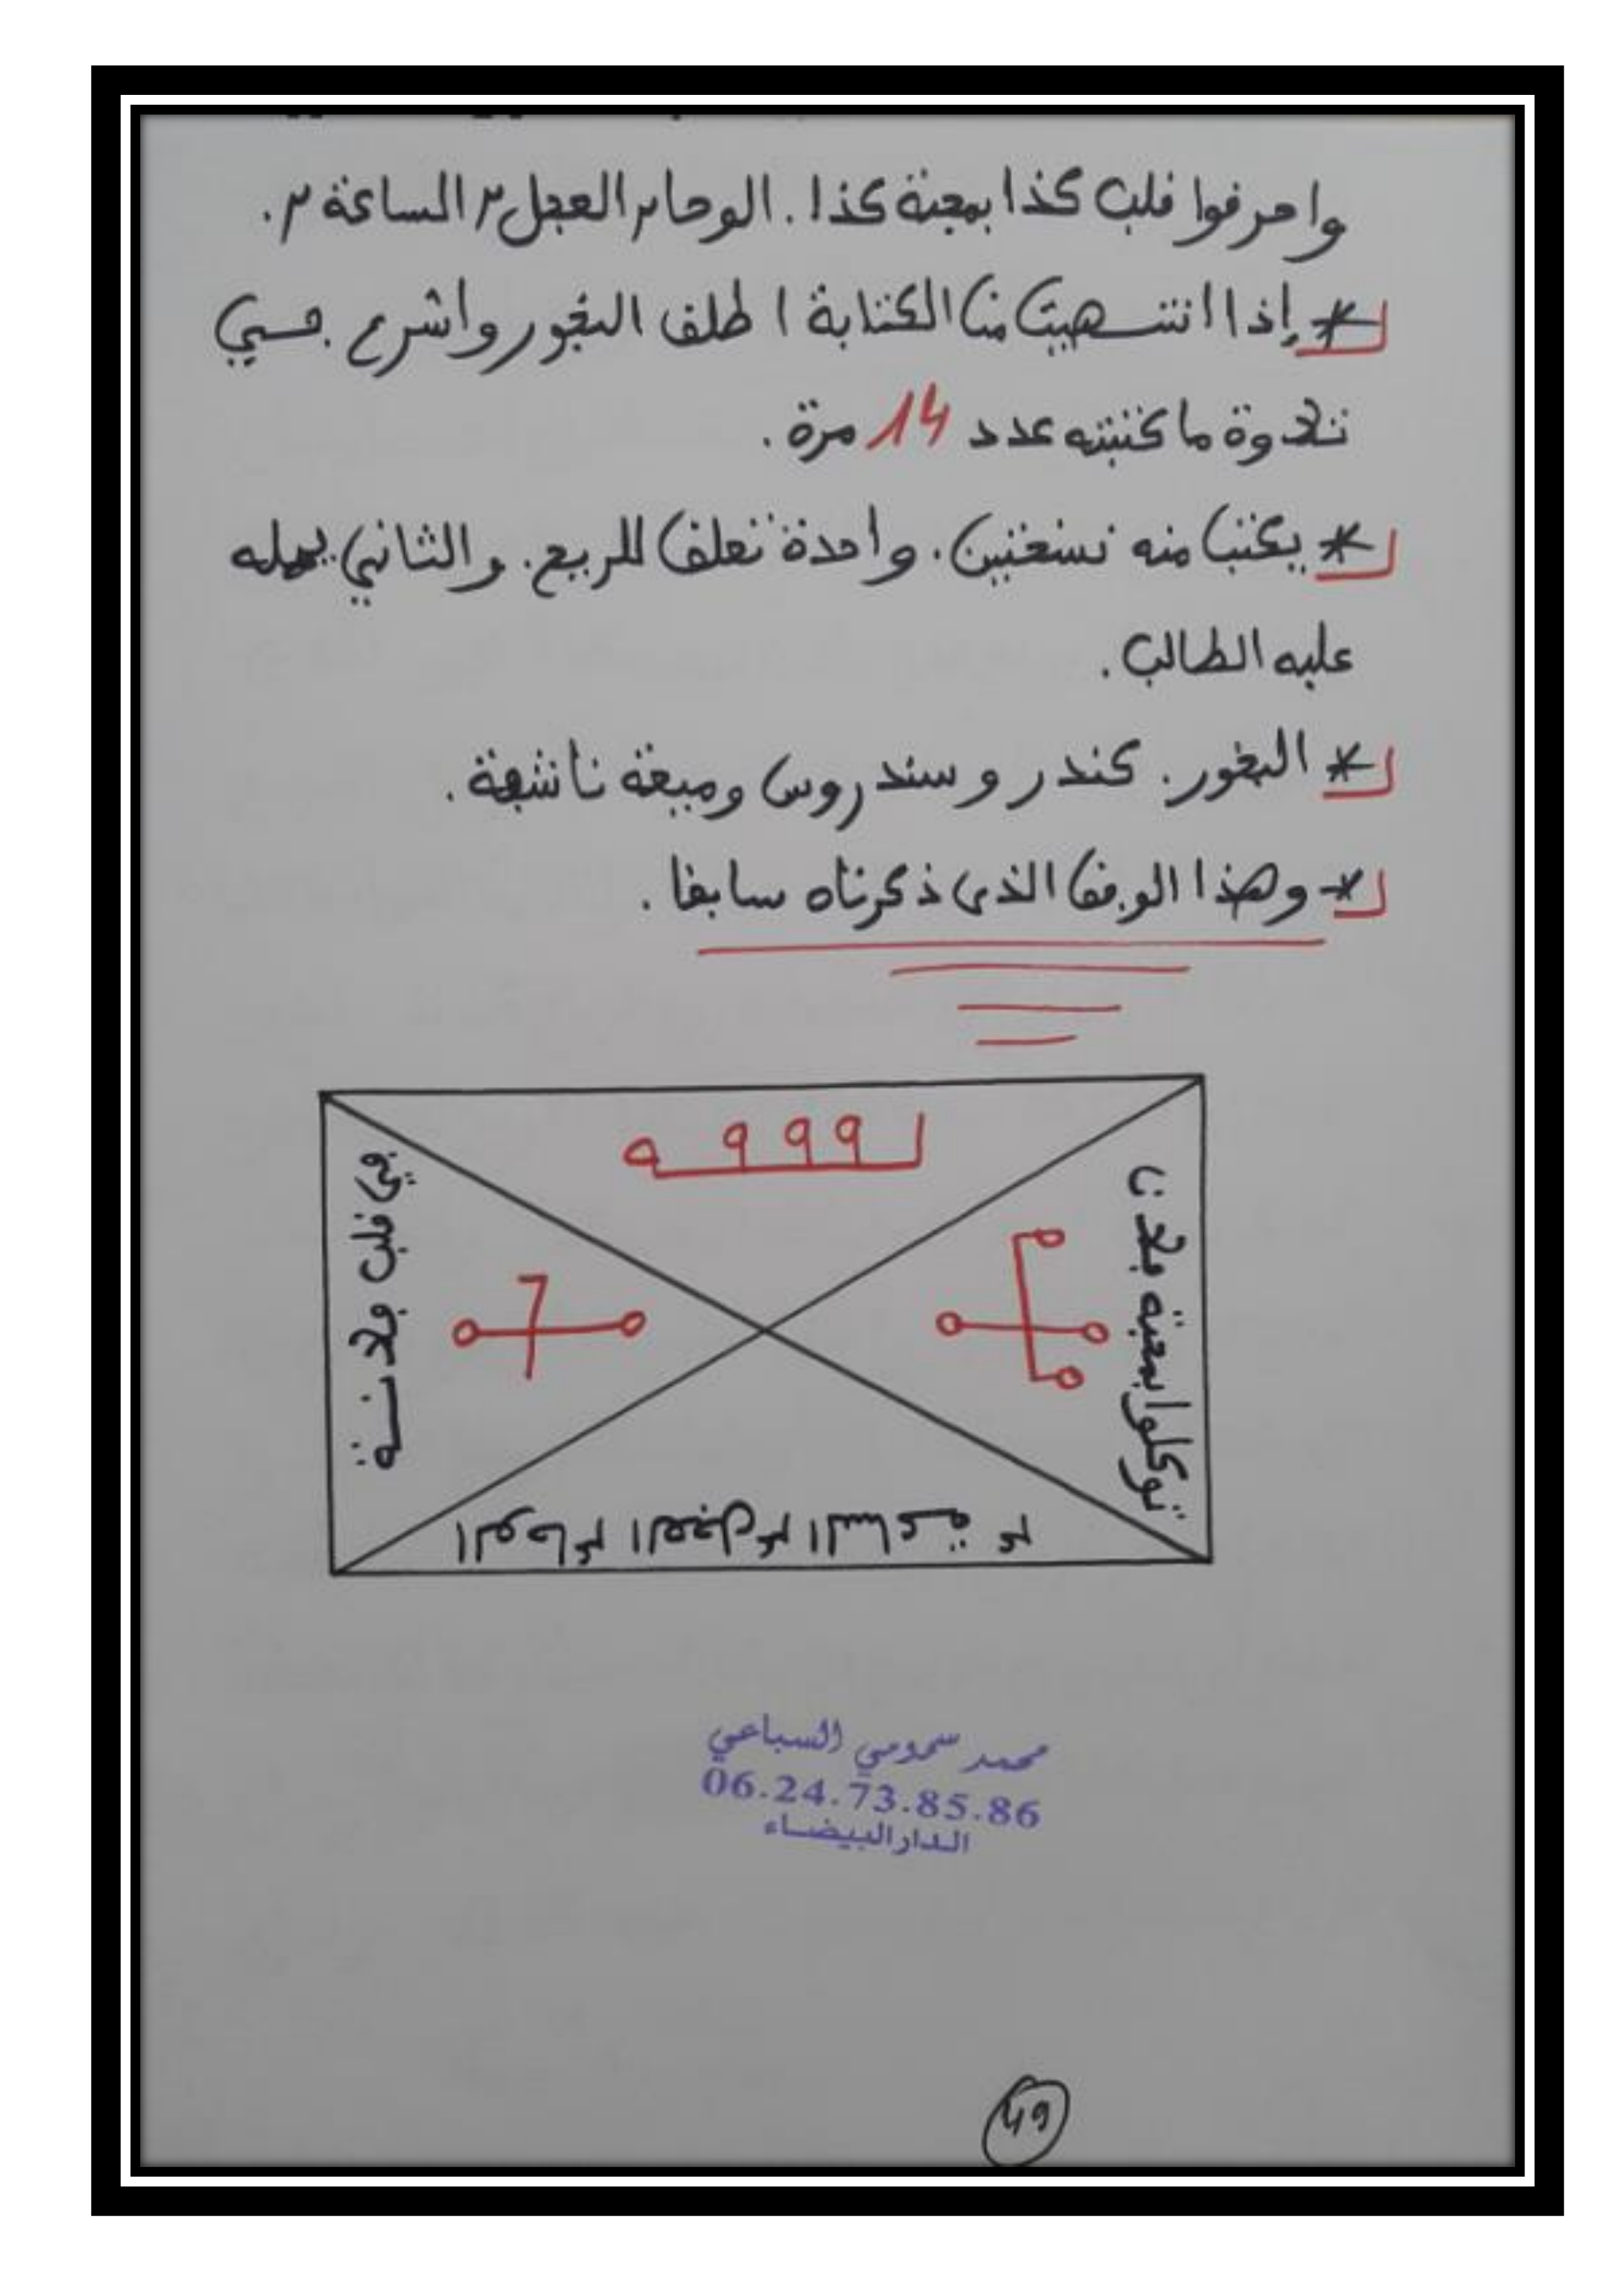 واحرفوا قلب كذا بمحبة كذا. الوحا٢ العجل٢ الساعة٢.
* إذا انتهيت من الكتابة اطلق البخور واشرع في
تلاوة ما كتبته عدد 14 مرة.
* يكتب منه نسختين. واحدة تعلق للريح. والثاني يحمله
عليه الطالب.
* البخور. كندر و سندروس وميعة ناشفة.
* وهذا الوفق الذي ذكرناه سابقا.
توكلوا بمحبة فلان
في قلب فلانة
الوحا٢ العجل٢ الساعة ٢
محمد سمومي السباعي
06.24.73.85.86
الدار البيضاء
49